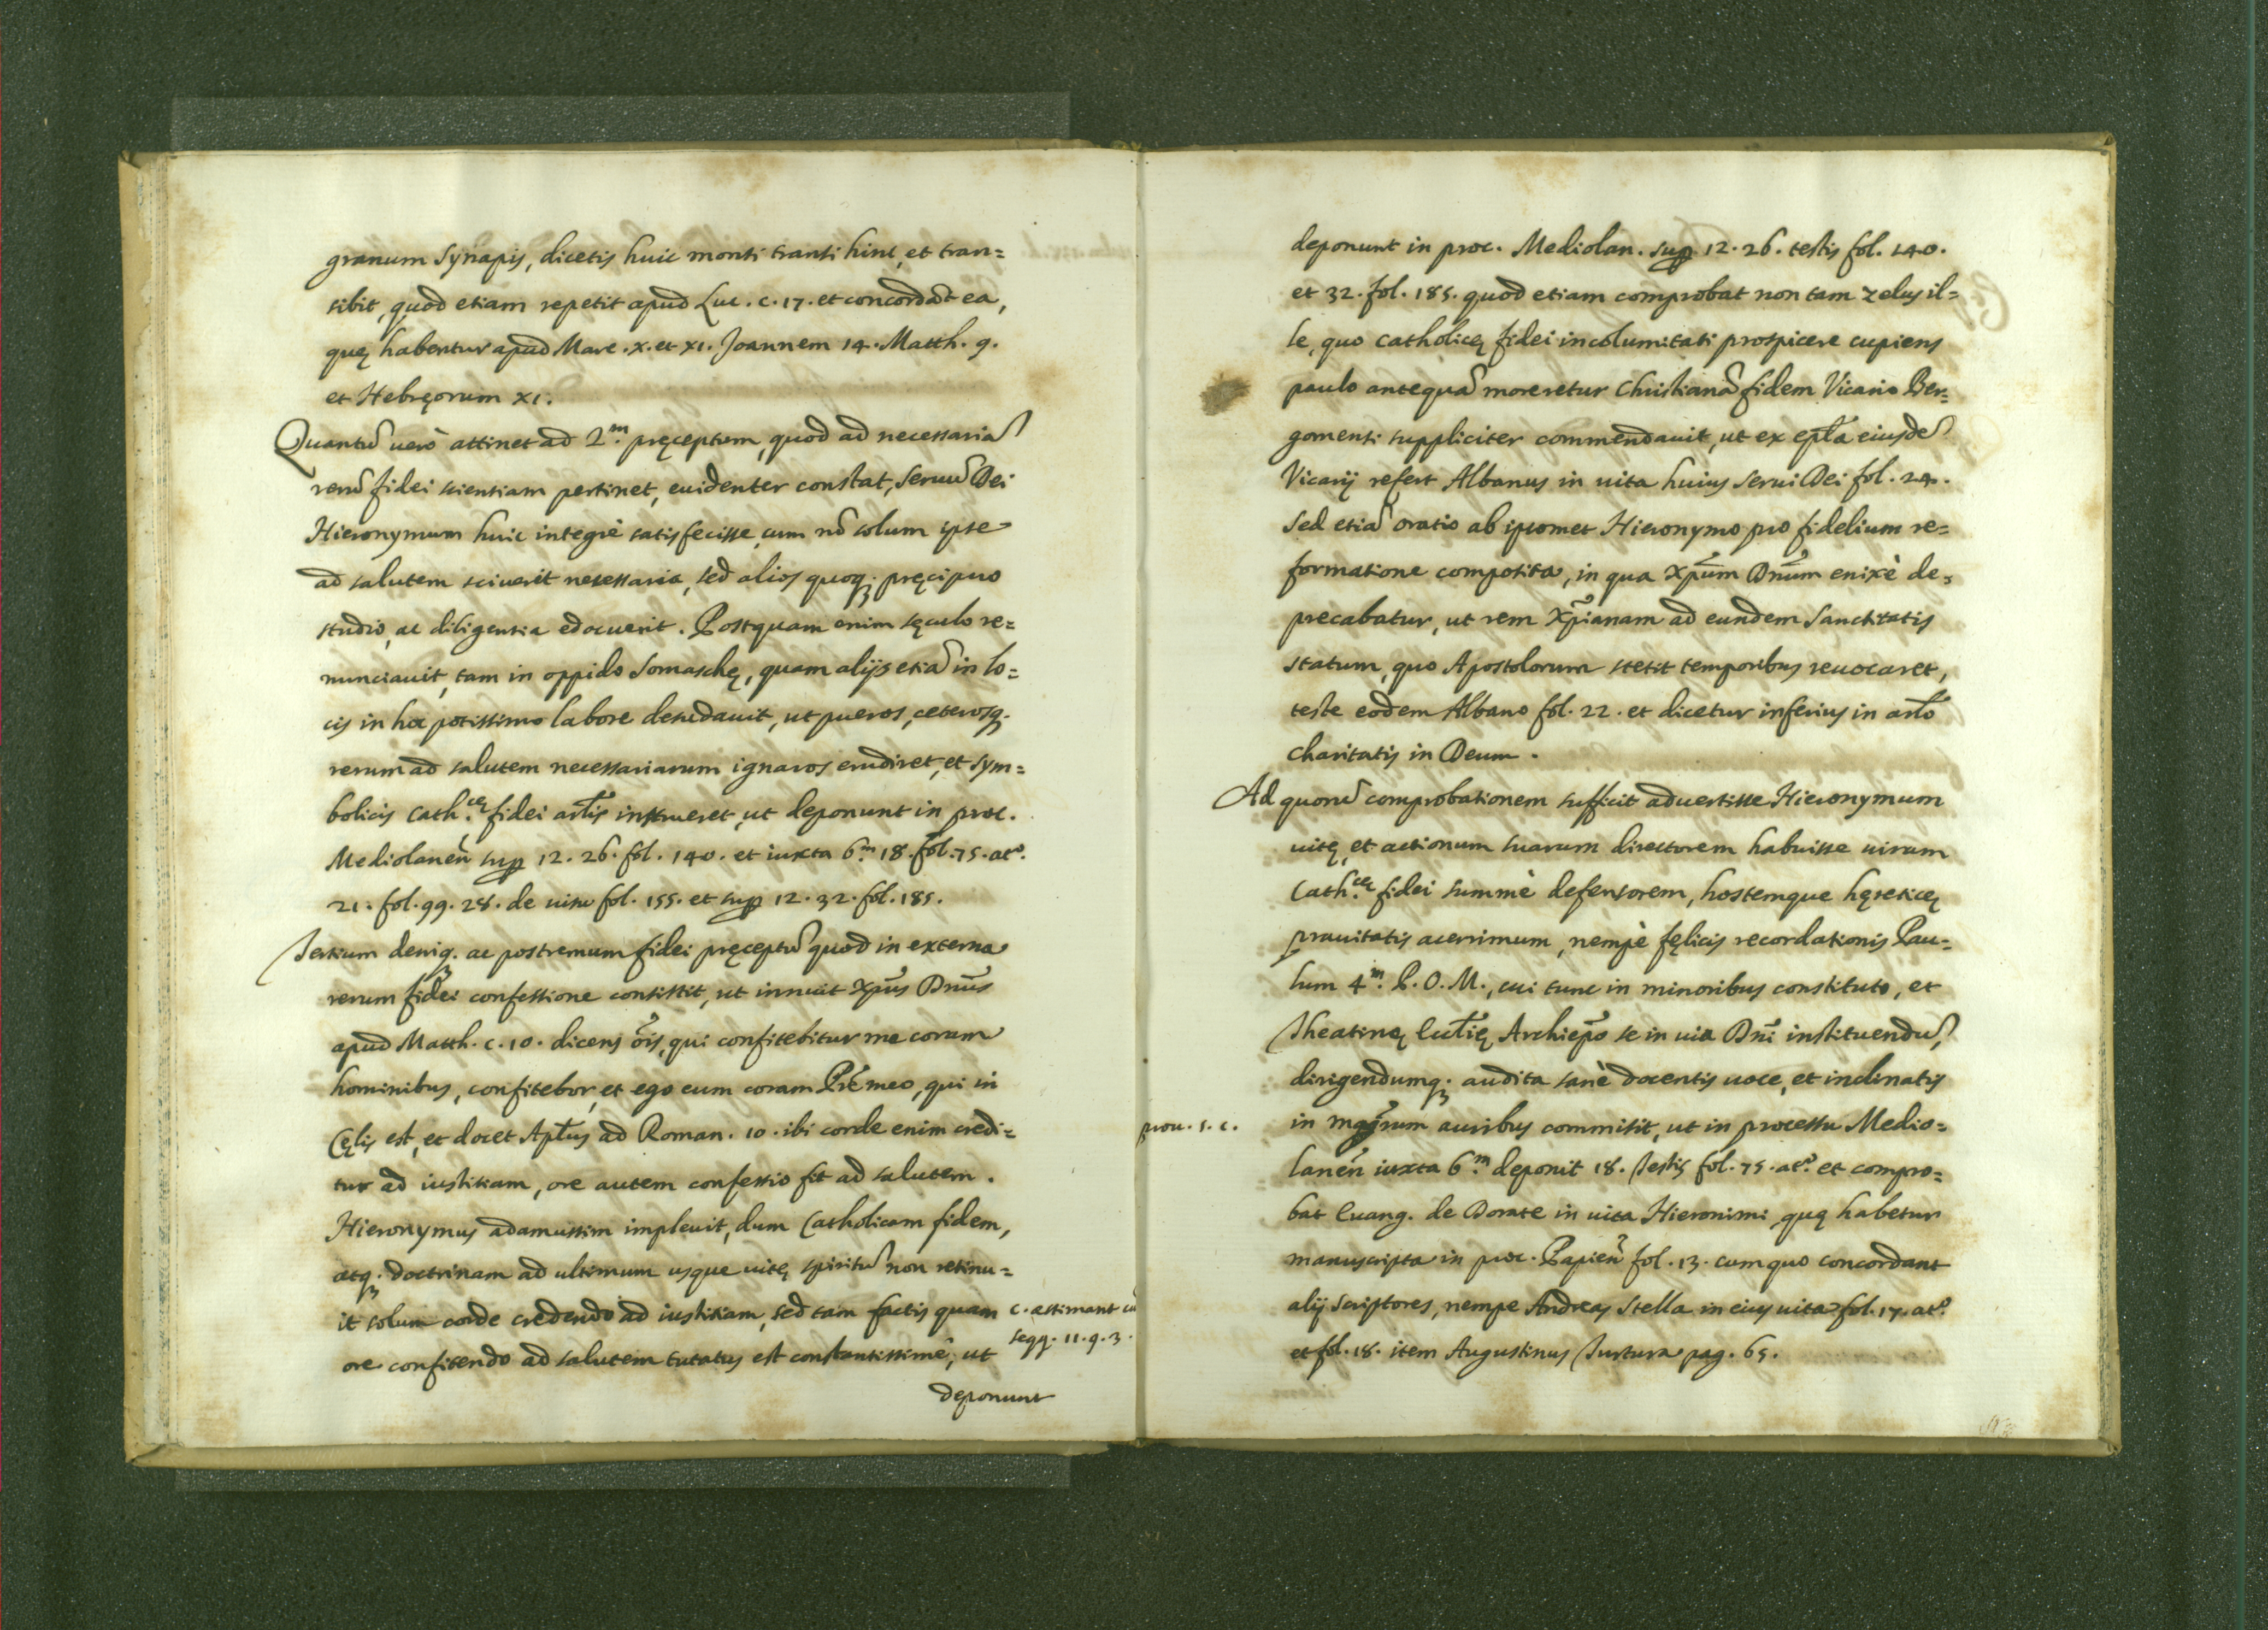 granum synapis, dicetis huic monti transi hinc, et tran=
sibit, quod etiam repetit apud Luc. c. 17. et concordãt ea,
quę habentur apud Marc. x. et xi. Joannem 14. Matth. 9.
et Hebręorum xi.
Quantũ uerò attinet ad 2.m pręceptum, quod ad necessariã
rerũ fidei scientiam pertinet, euidenter constat, seruũ Dei
Hieronymum huic integrè satisfecisse, cum nõ solum ipse
ad salutem sciuerit necessaria, sed alios quoq; pręcipuo
studio, ac diligentia edocuerit. Postquam enim sęculo re=
nunciauit, tam in oppido Somaschę, quam alijs etiã in lo=
cis in hoc potissimo labore desudauit, ut pueros, ceterosq;
rerum ad salutem necessariarum ignaros erudiret, et sym=
bolicis Cath.cę fidei artis̃ instrueret, ut deponunt in proc.
Mediolanen̄ sup 12. 26. fol. 140. et iuxta 6.m 18. fol. 75. ato.
21. fol. 99. 28. de uisu fol. 155. et sup 12. 32. fol. 185.
Tertium deniq; ac postremum fidei pręceptũ quod in externa
rerum fidei confessione consistit, ut innuit Xpus̃ Dnus̃
apud Matth. c. 10. dicens oĩs, qui confitebitur me coram
hominibus, confitebor, et ego eum coram Prẽ meo, qui in
Cęlis est, et docet Aplus̃ ad Roman. 10. ibi corde enim credi=
tur ad iustitiam, ore autem confessio fit ad salutem.
Hieronymus adamussim impleuit, dum Catholicam fidem,
atq; doctrinam ad ultimum usque uitę spiritũ non retinu=
it solum corde credendo ad iustitiam, sed tam factis quam
ore confitendo ad salutem tutatus est constantissimè, ut
c. astimant cũ
seqq. 11. q. 3.
deponunt
deponunt in proc. Mediolan. sup 12. 26. testis fol. 140.
et 32. fol. 185. quod etiam comprobat non tam zelus il=
le, quo catholicę fidei incolumitati prospicere cupiens
paulo antequã moreretur Christianã fidem Vicario Ber=
gomensi suppliciter commendauit, ut ex epl̃a eiusdẽ
Vicarij refert Albanus in uita huius serui Dei fol. 24.
sed etiã oratio ab ipsomet Hieronymo pro fidelium re=
formatione composita, in qua Xpum̃ Dnum̃ enixè de=
precabatur, ut rem Xpianam̃ ad eundem sanctitatis
statum, quo Apostolorum stetit temporibus reuocaret,
teste eodem Albano fol. 22. et dicetur inferius in artõ
charitatis in Deum.
Ad quorũ comprobationem sufficit aduertisse Hieronymum
uitę, et actionum suarum directorem habuisse uirum
Cath.cę fidei summè defensorem, hostemque hęreticę
prauitatis acerrimum, nempè fęlicis recordationis Pau=
lum 4.m P. O. M., cui tunc in minoribus constituto, et
Theatinę Eccl̃ię Archiepõ se in uia Dnĩ instituendũ,
dirigendumq; audita sanè docentis uoce, et inclinatis
prou. 5. c.
in mgrum auribus commisit, ut in processu Medio=
lanen̄ iuxta 6.m deponit 18. Testis fol. 75. ato. et compro=
bat Euang. de Dorate in uita Hieronimi quę habetur
manuscripta in proc. Papien̄ fol. 13. cum quo concordant
alij scriptores, nempe Andreas Stella in eius uita fol. 17. ato.
et fol. 18. item Augustinus Turtura pag. 65.